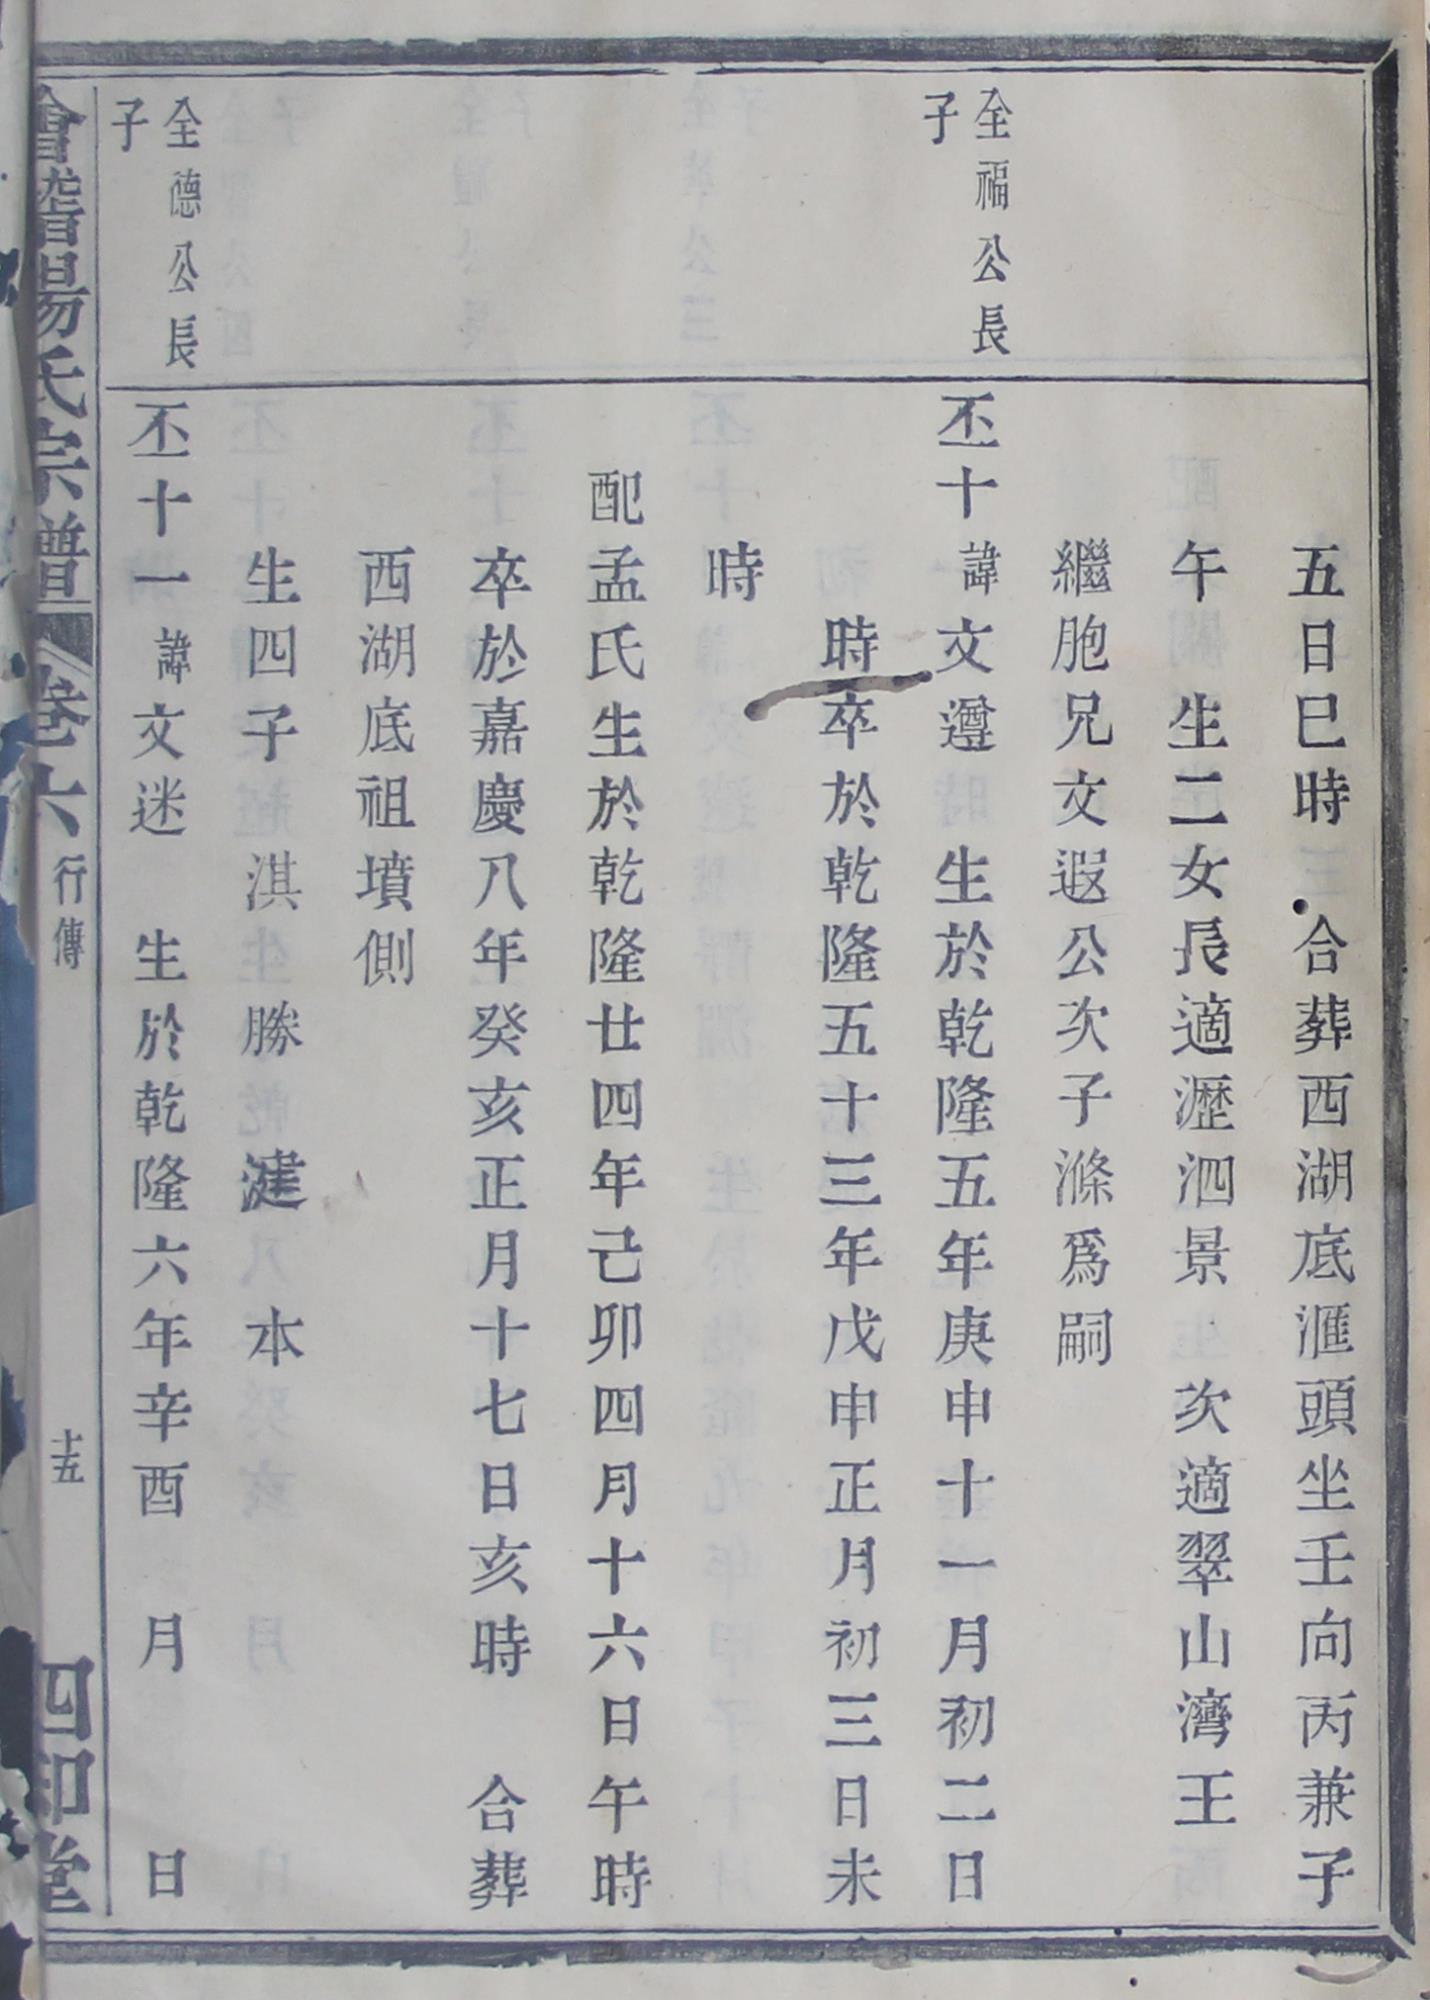 五日巳時　合葬西湖底滙頭坐壬向丙兼子
午　生二女長適瀝泗景　次適翠山灣王
繼胞兄文遐公次子滌爲嗣
全福公長
子
丕十諱文遵　生於乾隆五年庚申十一月初二日
時卒於乾隆五十三年戊申正月初三日未
時
配孟氏生於乾隆廿四年己卯四月十六日午時
卒於嘉慶八年癸亥正月十七日亥時　合葬
西湖底祖墳側
生四子　淇　勝　湕　本
全德公長
子
丕十一諱文迷　生於乾隆六年辛酉　月　　日
會稽楊氏宗譜　卷六　行傳　十五　四知堂